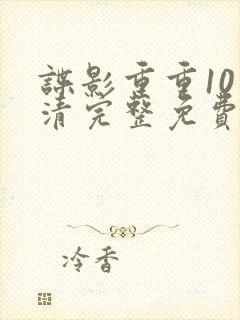 諜影重重10
清完整免費
冷香